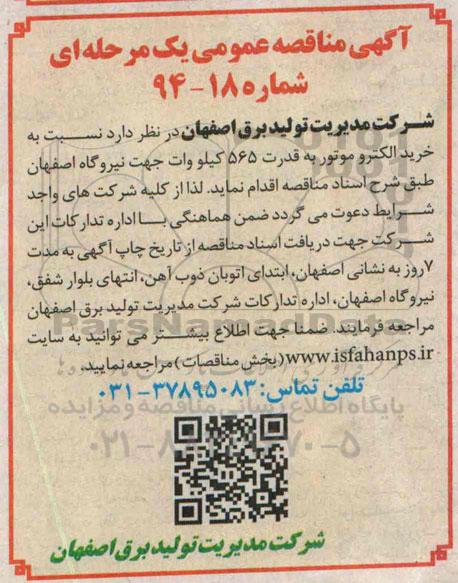 آگهی مناقصه عمومی یک مرحله ای
شماره ۱۸-۹۴
شرکت مدیریت تولید برق اصفهان در نظر دارد نسبت به
خرید الکترو موتور به قدرت ۵۶۵ کیلو وات جهت نیروگاه اصفهان
طبق شرح اسناد مناقصه اقدام نماید. لذا از کلیه شرکت های واجد
شرایط دعوت می گردد ضمن هماهنگی با اداره تدارکات این
شرکت جهت دریافت اسناد مناقصه از تاریخ چاپ آگهی به مدت
۷ روز به نشانی اصفهان، ابتدای اتوبان ذوب آهن، انتهای بلوار شفق،
نیروگاه اصفهان، اداره تدارکات شرکت مدیریت تولید برق اصفهان
مراجعه فرمایند. ضمنا جهت اطلاع بیشتر می توانید به سایت
www.isfahanps.ir (بخش مناقصات) مراجعه نمایید.
تلفن تماس: ۳۷۸۹۵۰۸۳-۰۳۱
پایگاه اطلاع رسانی مناقصه و مزایده
شرکت مدیریت تولید برق اصفهان